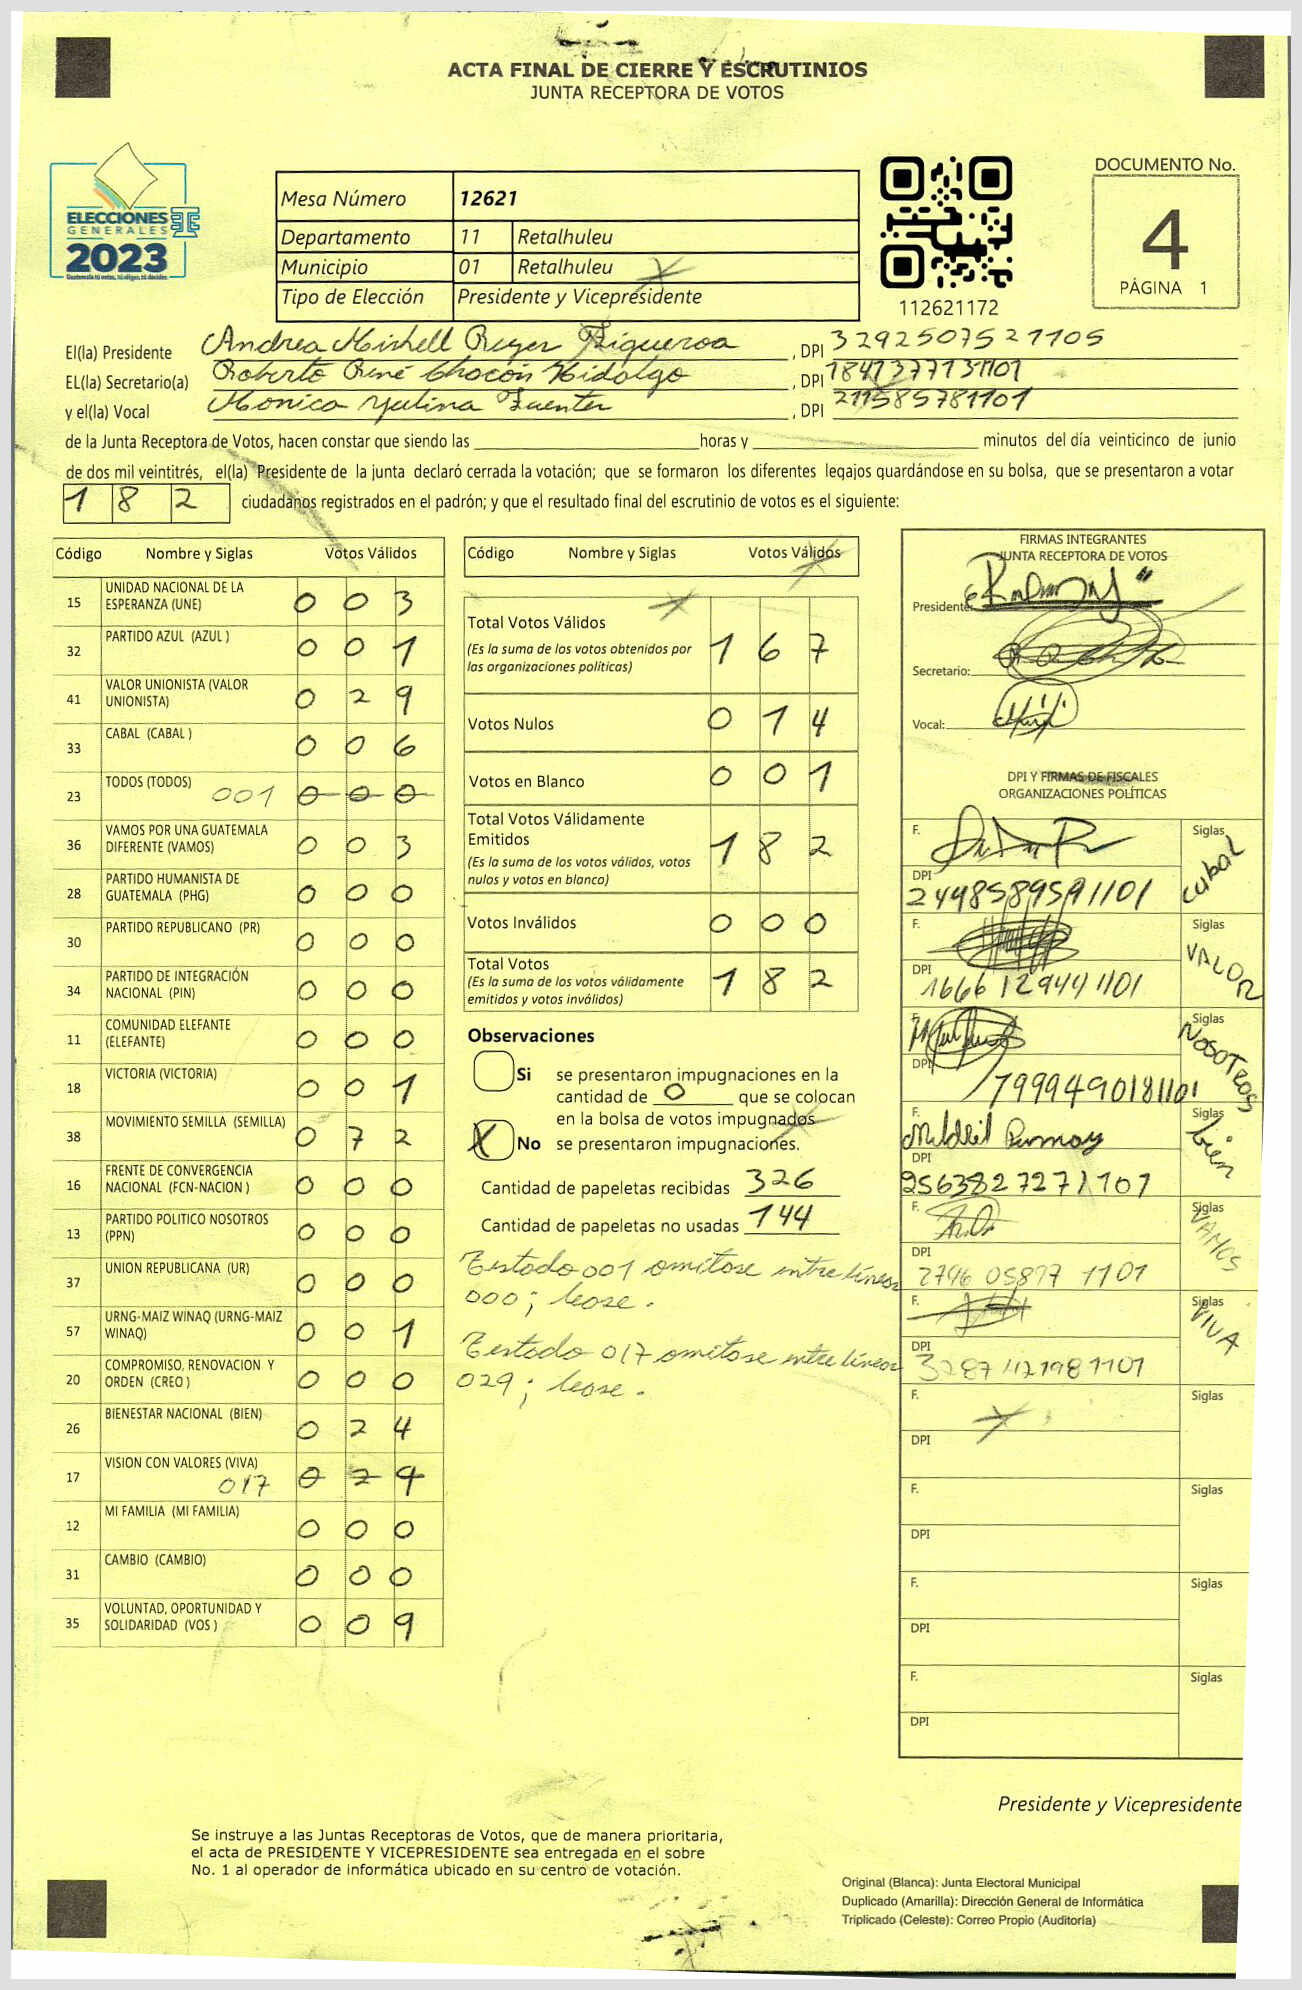 ACTA FINAL DE CIERRE Y ESCRUTINIOS
JUNTA RECEPTORA DE VOTOS
ELECCIONES
GENERALES
2023
Mesa Número 12621
Departamento 11 Retalhuleu
Municipio 01 Retalhuleu
Tipo de Elección Presidente y Vicepresidente
112621172
DOCUMENTO No.
4
PÁGINA 1
El(la) Presidente Andrea Mishell Reyes Figueroa, DPI 3292507521105
EL(la) Secretario(a) Roberto René Chacón Hidalgo, DPI 1847377131101
y el(la) Vocal Monica Yulina Fuentes, DPI 211585781101
de la Junta Receptora de Votos, hacen constar que siendo las horas y minutos del día veinticinco de junio
de dos mil veintitrés, el(la) Presidente de la junta declaró cerrada la votación; que se formaron los diferentes legajos guardándose en su bolsa, que se presentaron a votar
182 ciudadanos registrados en el padrón; y que el resultado final del escrutinio de votos es el siguiente:
Código Nombre y Siglas Votos Válidos
15 UNIDAD NACIONAL DE LA
ESPERANZA (UNE) 003
32 PARTIDO AZUL (AZUL ) 001
41 VALOR UNIONISTA (VALOR
UNIONISTA) 029
33 CABAL (CABAL ) 006
23 TODOS (TODOS) 001 000
36 VAMOS POR UNA GUATEMALA
DIFERENTE (VAMOS) 003
28 PARTIDO HUMANISTA DE
GUATEMALA (PHG) 000
30 PARTIDO REPUBLICANO (PR) 000
34 PARTIDO DE INTEGRACIÓN
NACIONAL (PIN) 000
11 COMUNIDAD ELEFANTE
(ELEFANTE) 000
18 VICTORIA (VICTORIA) 001
38 MOVIMIENTO SEMILLA (SEMILLA) 072
16 FRENTE DE CONVERGENCIA
NACIONAL (FCN-NACION ) 000
13 PARTIDO POLITICO NOSOTROS
(PPN) 000
37 UNION REPUBLICANA (UR) 000
57 URNG-MAIZ WINAQ (URNG-MAIZ
WINAQ) 001
20 COMPROMISO, RENOVACION Y
ORDEN (CREO ) 000
26 BIENESTAR NACIONAL (BIEN) 024
17 VISION CON VALORES (VIVA) 017
12 MI FAMILIA (MI FAMILIA) 000
31 CAMBIO (CAMBIO) 000
35 VOLUNTAD, OPORTUNIDAD Y
SOLIDARIDAD (VOS ) 009
Código Nombre y Siglas Votos Válidos
Total Votos Válidos 167
(Es la suma de los votos obtenidos por
las organizaciones políticas)
Votos Nulos 014
Votos en Blanco 001
Total Votos Válidamente
Emitidos 182
(Es la suma de los votos válidos, votos
nulos y votos en blanco)
Votos Inválidos 000
Total Votos 182
(Es la suma de los votos válidamente
emitidos y votos inválidos)
Observaciones
Si se presentaron impugnaciones en la
cantidad de 0 que se colocan
en la bolsa de votos impugnados
X No se presentaron impugnaciones.
Cantidad de papeletas recibidas 326
Cantidad de papeletas no usadas 144
Testado 001 omitase entre líneas
000; lease.
Testado 017 omitase entre líneas
029; lease.
FIRMAS INTEGRANTES
JUNTA RECEPTORA DE VOTOS
Presidente:
Secretario:
Vocal:
DPI Y FIRMAS DE FISCALES
ORGANIZACIONES POLÍTICAS
F. Siglas Cabal
DPI 2448589591101
F. Siglas VALOR
DPI 1666129441101
F. Siglas NOSOTROS
DPI 7999490181101
F. Siglas bien
DPI 2563827271101
F. Siglas VAMOS
DPI
F. Siglas VIVA
DPI
F. Siglas
DPI
F. Siglas
DPI
F. Siglas
DPI
F. Siglas
DPI
Presidente y Vicepresidente
Se instruye a las Juntas Receptoras de Votos, que de manera prioritaria,
el acta de PRESIDENTE Y VICEPRESIDENTE sea entregada en el sobre
No. 1 al operador de informática ubicado en su centro de votación.
Original (Blanca): Junta Electoral Municipal
Duplicado (Amarilla): Dirección General de Informática
Triplicado (Celeste): Correo Propio (Auditoría)